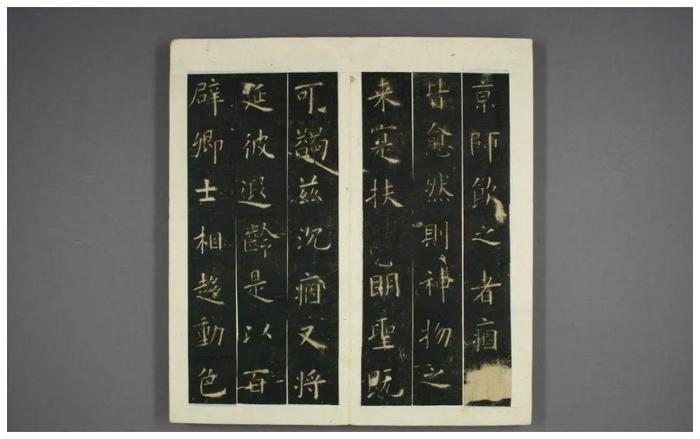 京師飲之者痼
皆愈然則神物之
来寔扶 眀聖既
可蠲兹沉痼又將
延彼遐齡是以百
辟卿士相趍動色